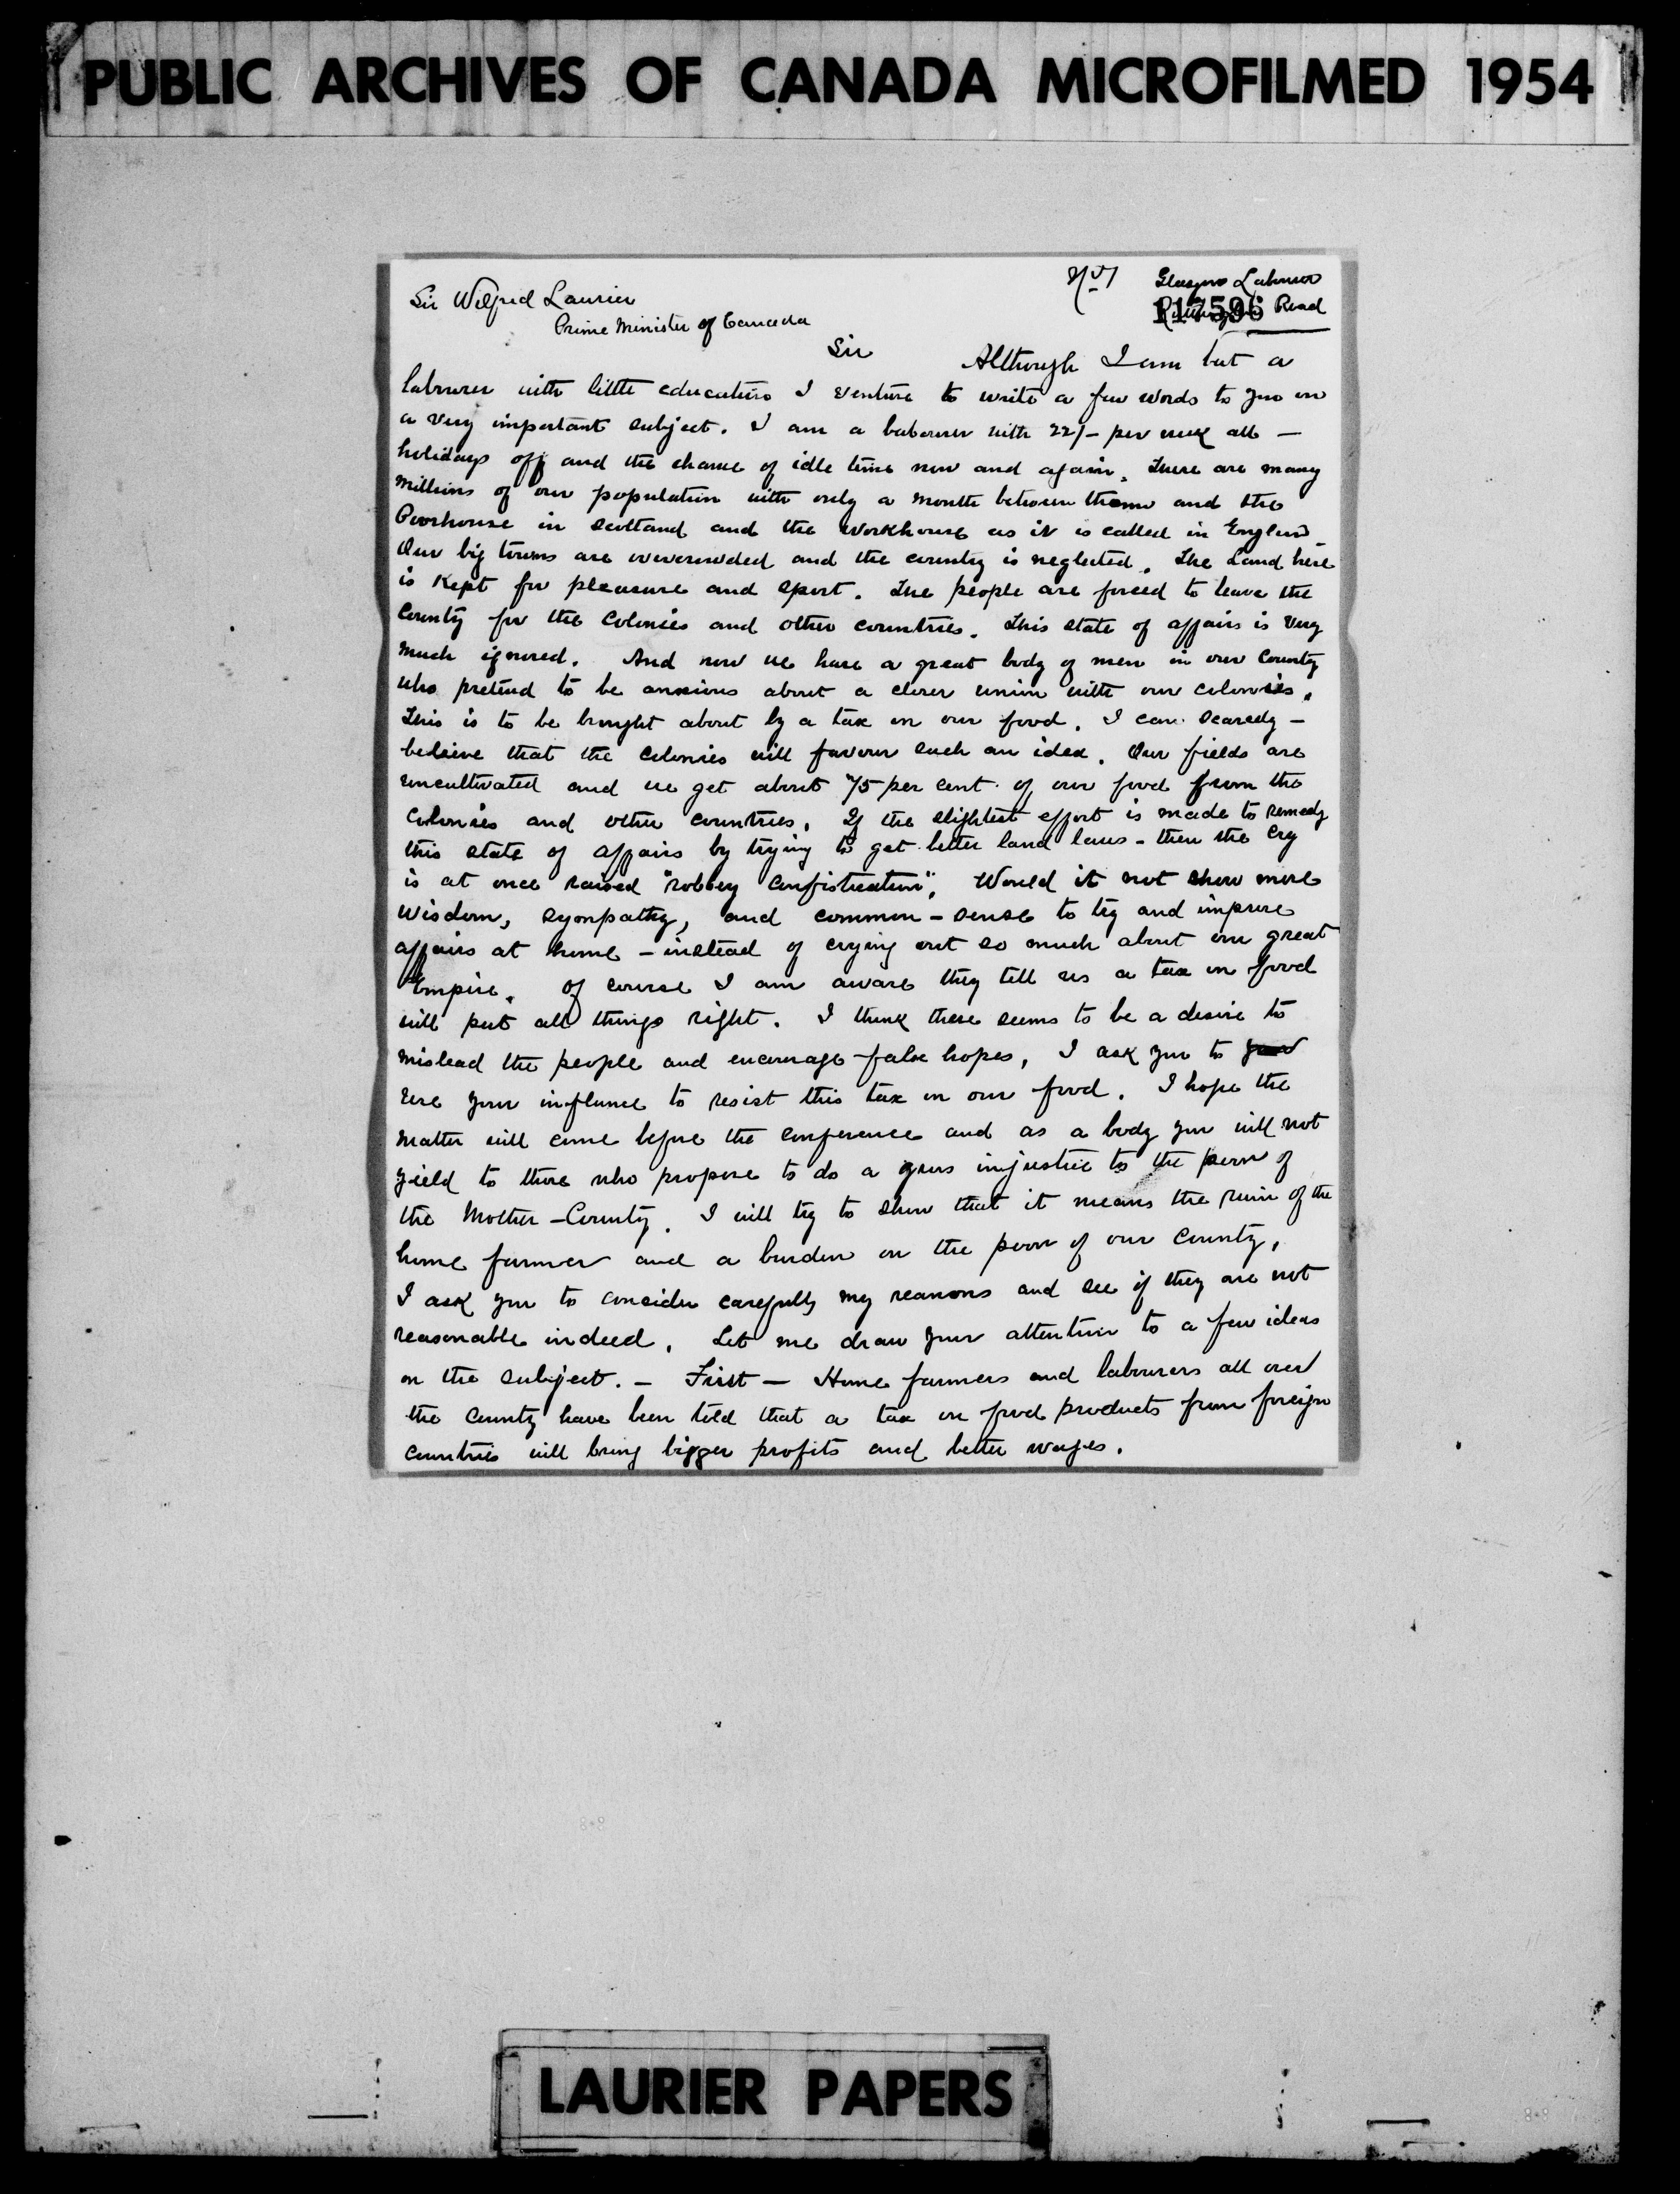 PUBLIC ARCHIVES OF CANADA MICROFILMED 1954
No 1
Glasgow Labourer
117596 Road
Sir Wilfrid Laurier
Prime Minister of Canada
Sir Although I am but a
labourer with little education I venture to write a few words to you on
a very important subject. I am a labourer with 22/- per week all -
holidays off and the chance of idle time now and again. There are many
Millions of our population with only a month between them and the
Poorhouse in Scotland and the Workhouse as it is called in England
Our big towns are overcrowded and the country is neglected. The Land here
is Kept for pleasure and sport. The people are forced to leave the
Country for the Colonies and other countries. This state of affairs is Very
much ignored. And now we have a great body of men in our Country
who pretend to be anxious about a closer union with our colonies.
This is to be brought about by a tax on our food. I can scarcely -
beleive that the colonies will favour such an idea. Our fields are
uncultivated and we get about 75 per cent. of our food from the
Colonies and other countries. If the slightest effort is made to remedy
this state of affairs by trying to get better land laws - then the cry
is at once raised "robbery confistication". Would it not show more
Wisdom, sympathy, and common-sense to try and improve
affairs at home - instead of crying out so much about our great
Empire. Of course I am aware they tell us a tax on food
will put all things right. I think there seems to be a desire to
mislead the people and encourage false hopes, I ask you to
use your influnce to resist this tax on our food. I hope the
matter will come before the conference and as a body you will not
yield to those who propose to do a gross injustice to the poor of
the Mother-Country. I will try to show that it means the ruin of the
home farmer and a burden on the poor of our Country,
I ask you to consider carefully my reasons and see if they are not
reasonable indeed. Let me draw your attention to a few ideas
on the subject. - First - Home farmers and labourers all over
the Country have been told that a tax on food products from foreign
countries will bring bigger profits and better wages.
LAURIER PAPERS